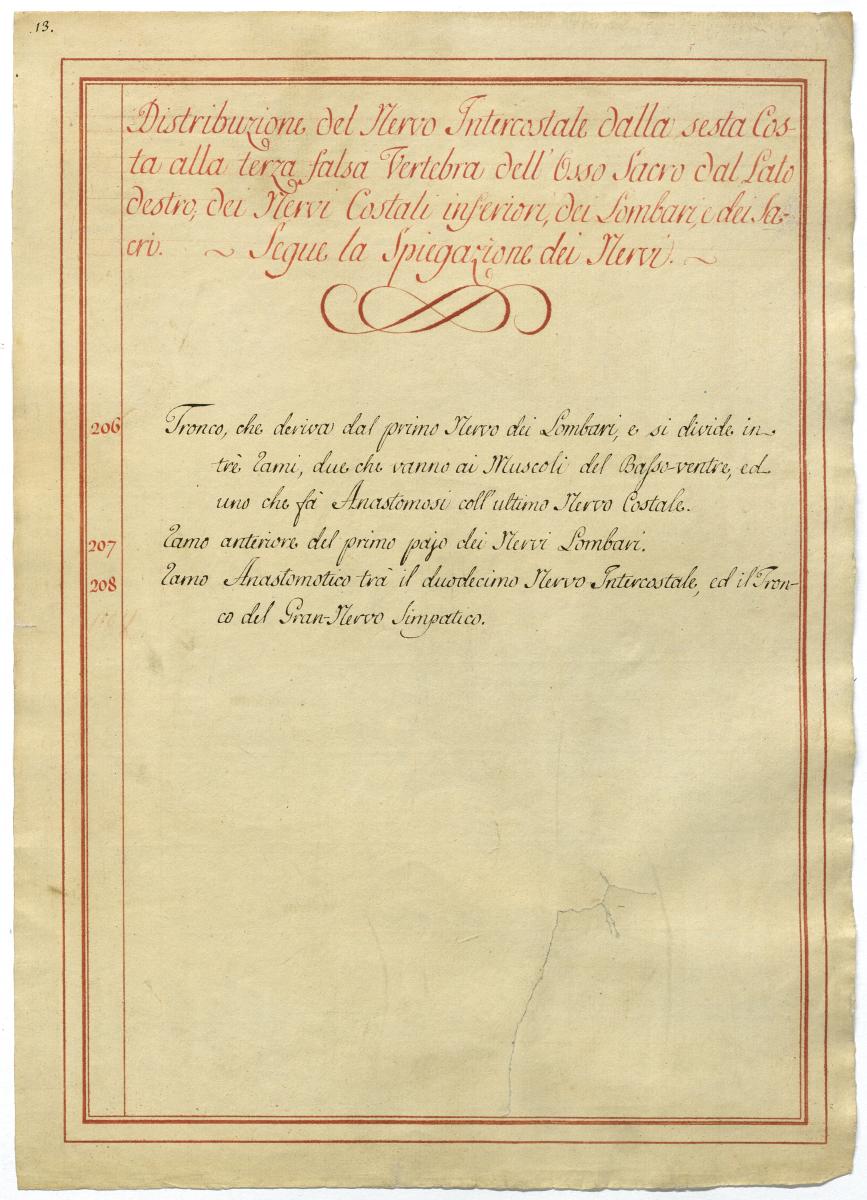 13.
Distribuzione del Nervo Intercostale dalla sesta Cos-
ta alla terza falsa Vertebra dell' Osso Sacro dal Lato
destro, dei Nervi Costali inferiori, dei Lombari, e dei Sa-
cri. ~ Segue la Spiegazione dei Nervi. ~
206 Tronco, che deriva dal primo Nervo dei Lombari, e si divide in
trè Rami, due che vanno ai Muscoli del Basso-ventre, ed
uno che fà Anastomosi coll'ultimo Nervo Costale.
207 Ramo anteriore del primo pajo dei Nervi Lombari.
208 Ramo Anastomotico trà il duodecimo Nervo Intercostale, ed il Tron-
co del Gran-Nervo Simpatico.